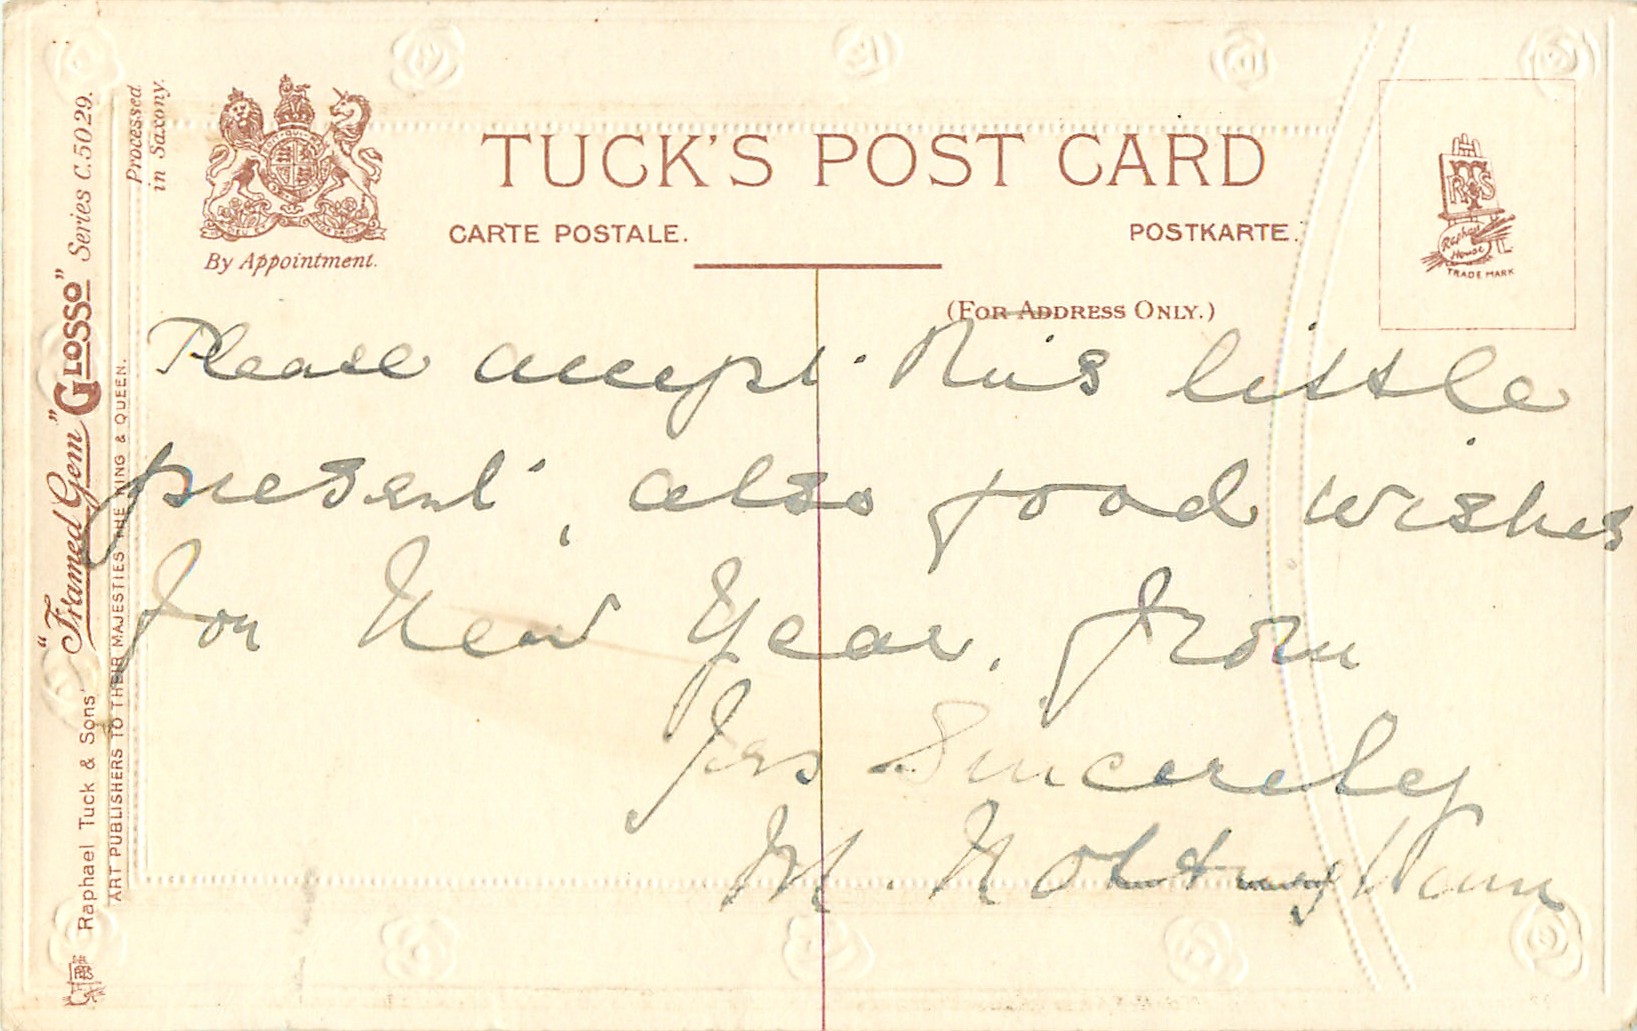 TUCK'S POST CARD
CARTE POSTALE.
POSTKARTE.
(FOR ADDRESS ONLY.)
By Appointment.
Processed
in Saxony.
"Framed Gem" "GLOSSO" Series C.5029.
Raphael Tuck & Sons'
ART PUBLISHERS TO THEIR MAJESTIES THE KING & QUEEN.
RTS
Raphael
House
TRADE MARK
Please accept this little
present, also good wishes
for New Year, from
Yrs Sincerely
M. Nottingham